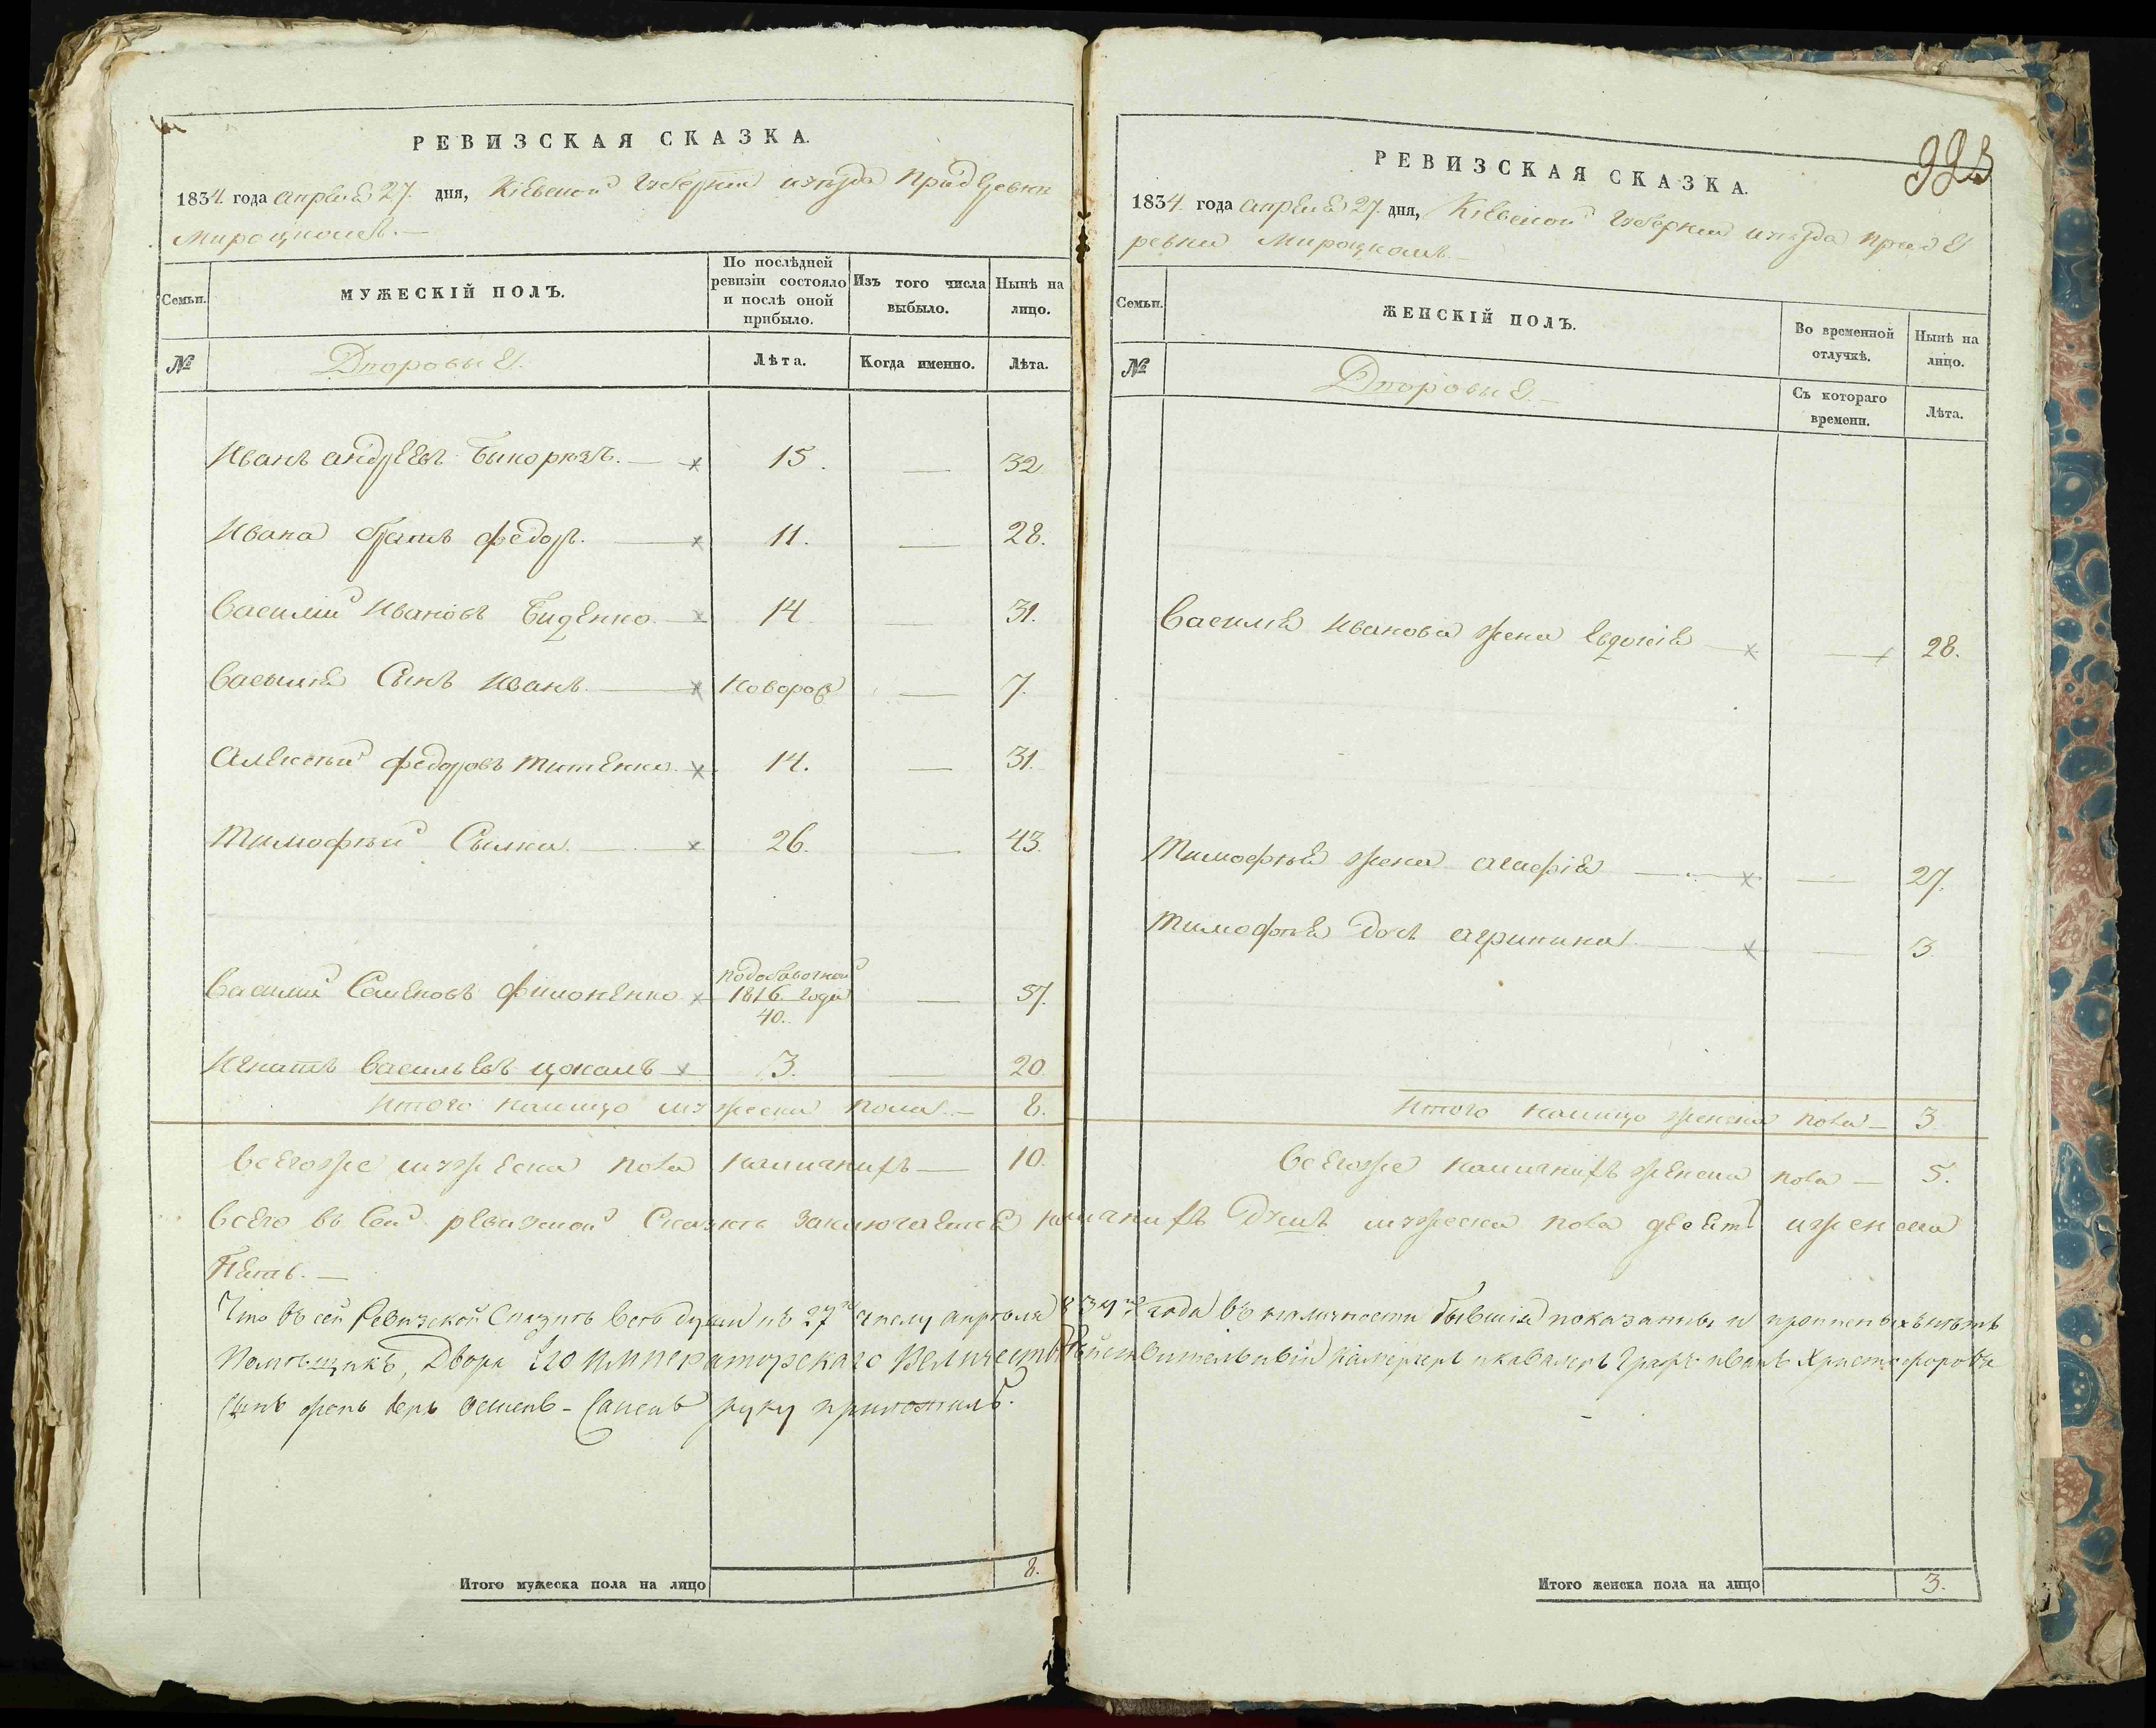 РЕВИЗСКАЯ СКАЗКА.
1834. года апреля 27. дня, Кіевской Губерніи и уезда при деревни
Мироцкомъ. —
Семьи. МУЖЕСКІЙ ПОЛЪ. По послѣдней ревизіи состояло и послѣ оной прибыло. Изъ того числа выбыло. Нынѣ на лицо.
№ Дворовые. Лѣта. Когда именно. Лѣта.
Иванъ андреевъ — х 15. — 32
Ивана братъ федоръ. — х 11. — 28.
Василий Ивановъ Биденко — х 14 — 31.
Василия Сынъ Иванъ — х Новорож — 7.
Алексей федоровъ Титенко — х 14. — 31.
Тимофей — х 26. — 43.
Василий Семеновъ Филоненко х по добавочной 1816 года 40. — 57.
Игнатъ Васильевъ — х 3. — 20
Итого налицо мужеска пола — 8.
Всегоже мужеска пола наличнихъ — 10.
РЕВИЗСКАЯ СКАЗКА.
993
1834. года апреля 27. дня, Кіевской Губерніи и уезда при де
ревни Мироцкомъ —
Семьи. ЖЕНСКІЙ ПОЛЪ. Во временной отлучкѣ. Нынѣ на лицо.
№ Дворовые. — Съ котораго времени. Лѣта.
Василия Иванова жена Евдокія — х — 28.
Тимофея жена агафія — х — 27.
Тимофея дочь агрипина — х — 3
Итого налицо женска пола — 3
Всегоже наличнихъ женска пола — 5.
Всего въ Сей ревизской Сказке заключается наличнихъ Душъ мужеска пола десет и женска
Пять. —
Что въ сей Ревизской Сказке все души къ 27 числу апреля 1834 года въ наличности бывшія показаны и
Помѣщикъ, Двора Его Императорскаго Величества Действительный Камергеръ и кавалеръ Графъ Иванъ Христофорова
Сынъ деръ Остенъ-Сакенъ руку приложилъ.
Итого мужеска пола на лицо 8.
Итого женска пола на лицо 3.